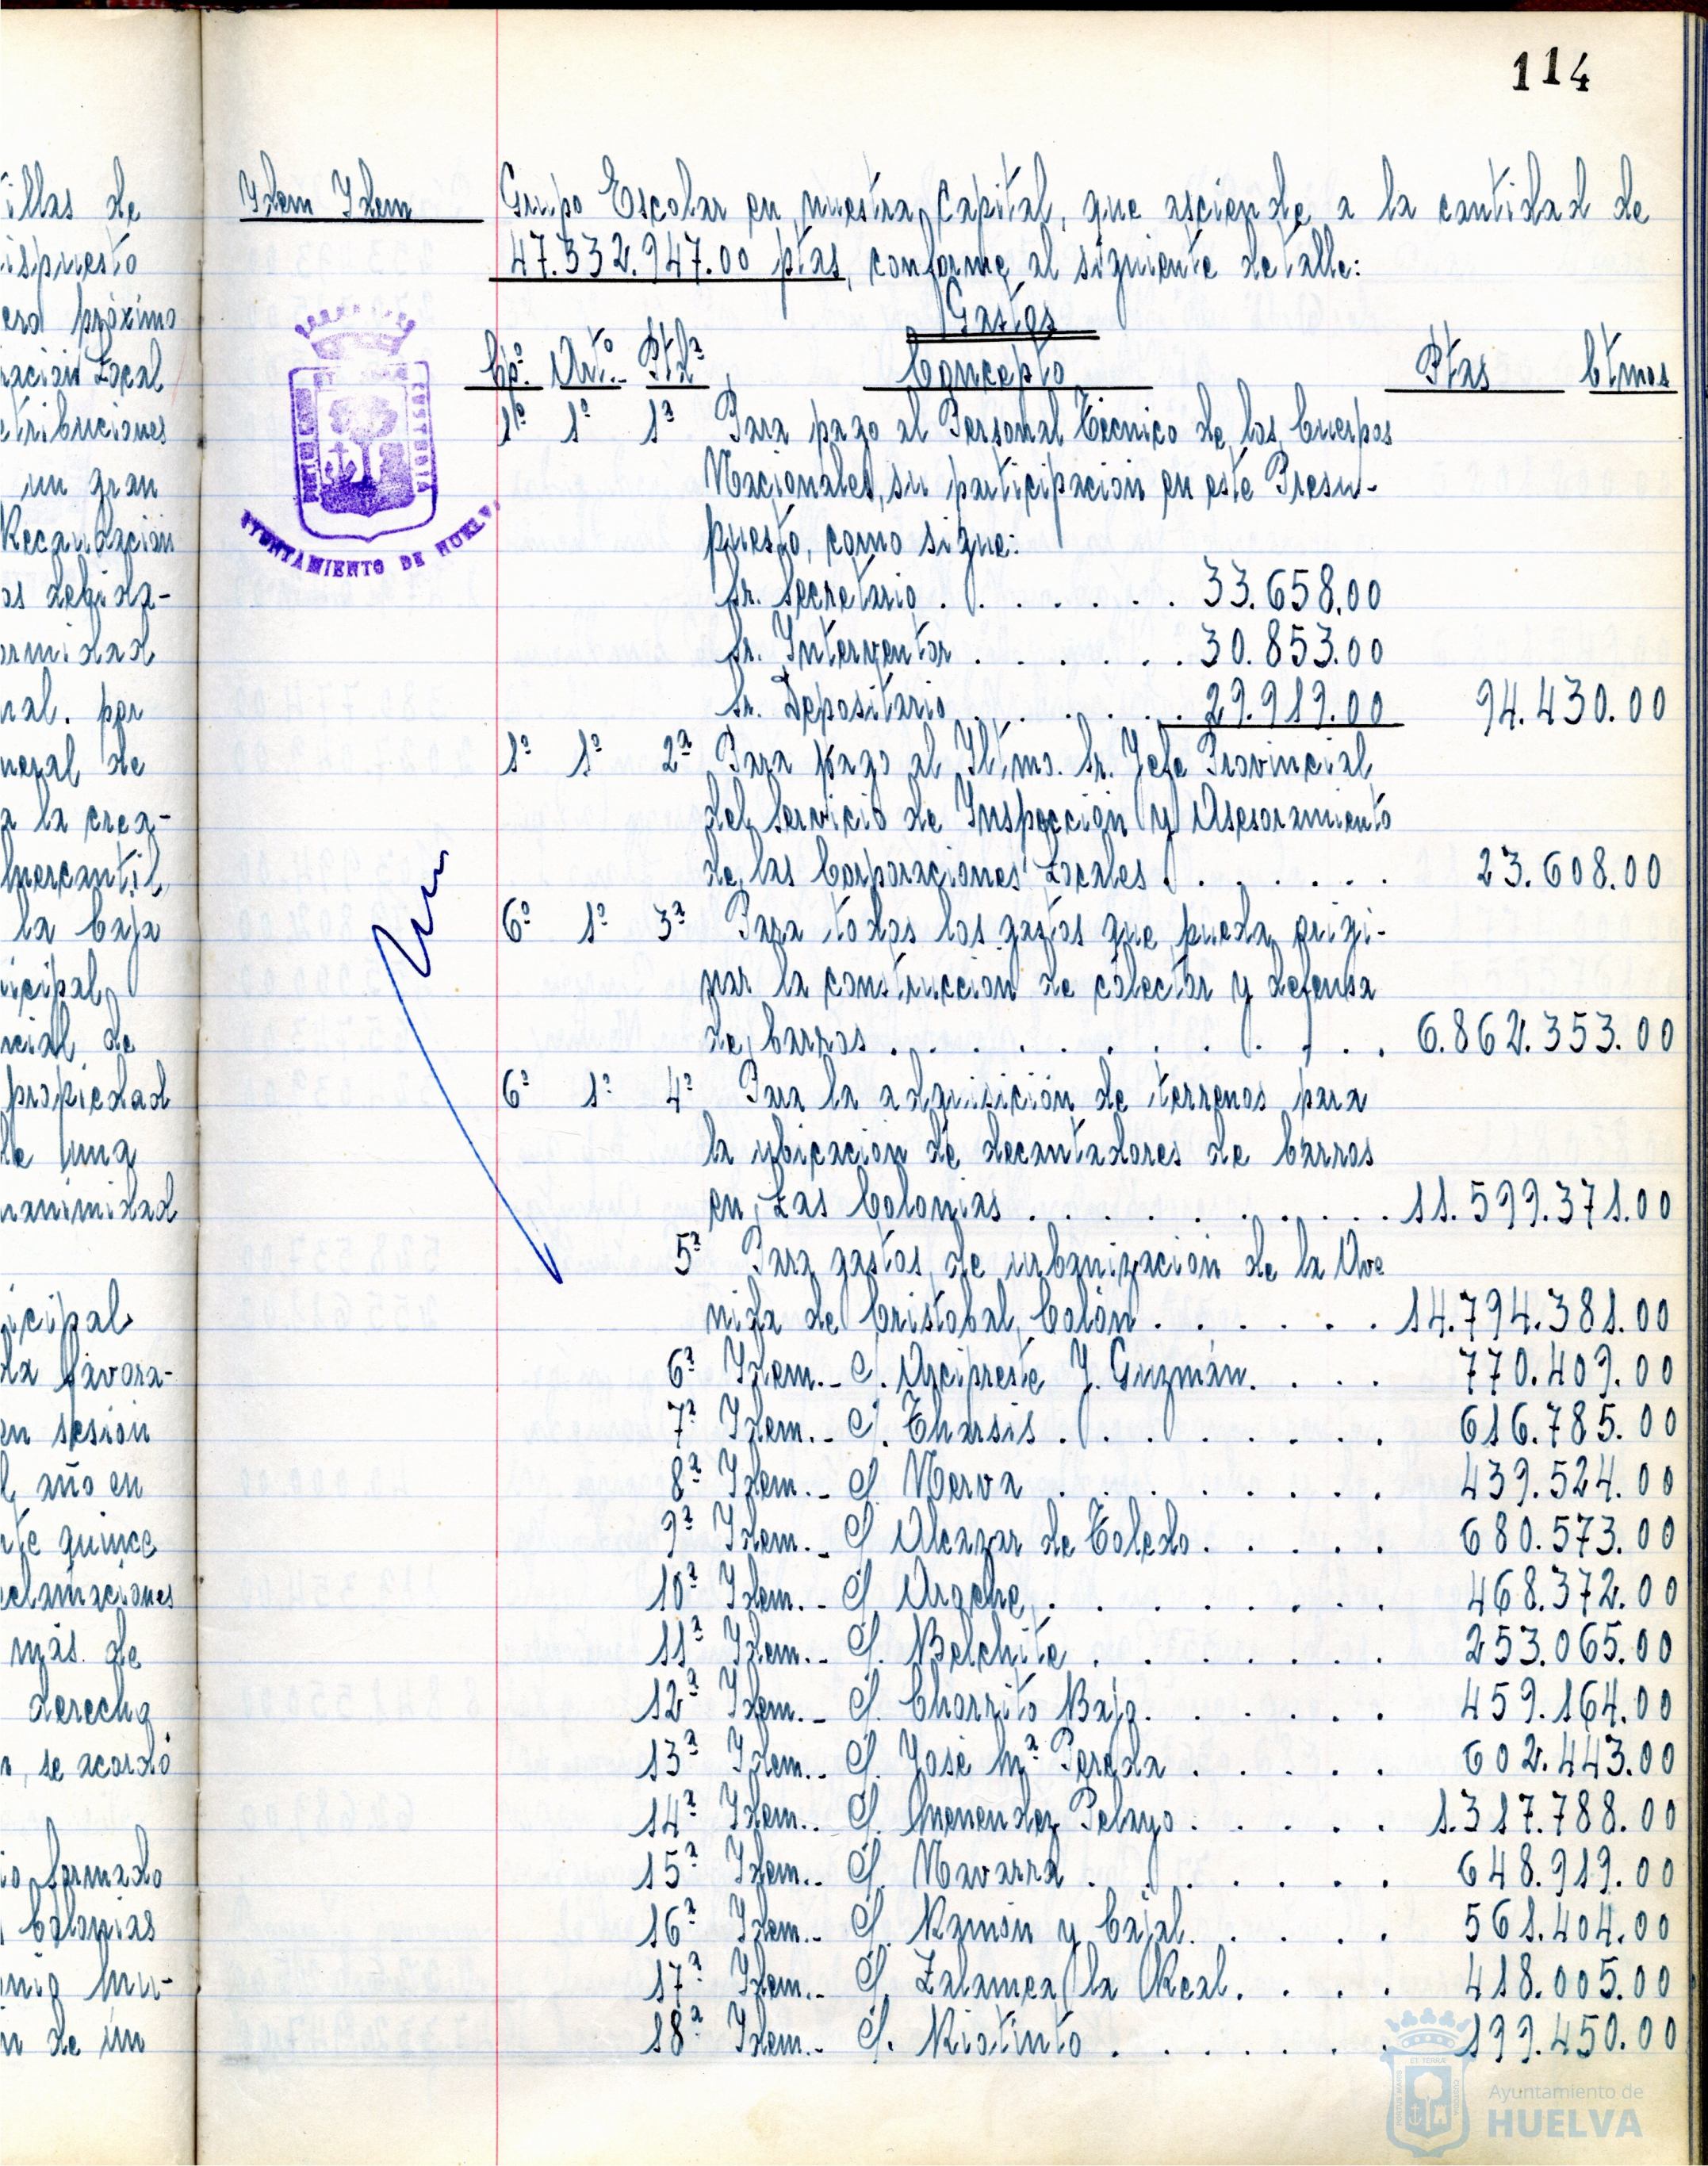 114
illas de
ispuesto
ero próximo
ración Local
etribuciones
un gran
Recaudación
os debida-
ormidad
nal. por
neral de
a la crea-
Mercantil
la baja
nicipal
ncial de
propiedad
de una
nanimidad
nicipal
da favora-
en sesión
l año en
nte quince
eclamaciones
más de
derecho
n, se acordó
io formado
Colonias
Mu-
n de un
Idem Idem
AYUNTAMIENTO DE HUELVA
Grupo Escolar en nuestra Capital, que asciende a la cantidad de
47.332.947.00 ptas, conforme al siguiente detalle:
Gastos
Cpº. Artº.- Ptdª Concepto Ptas Ctmos
1º 1º 1ª Para pago al Personal Técnico de los Cuerpos
Nacionales, su participación en este Presu-
puesto, como sigue:
Sr. Secretario . . . . . . . 33.658.00
Sr. Interventor . . . . . . . 30.853.00
Sr. Depositario . . . . . . . 29.919.00 94.430.00
1º 1º 2ª Para pago al Iltmo. Sr. Jefe Provincial
del Servicio de Inspección y Asesoramiento
de las Corporaciones Locales . . . . . . 23.608.00
6º 1º 3ª Para todos los gastos que pueda origi-
nar la construcción de colector y defensa
de barros . . . . . . . . . . . 6.862.353.00
6º 1º 4ª Para la adquisición de terrenos para
la ubicación de decantadores de barros
en Las Colonias . . . . . . . . . 11.599.371.00
5ª Para gastos de urbanización de la Ave
nida de Cristobal Colón . . . . . . 14.794.381.00
6ª Idem.- C/. Arcipreste J. Guzmán. . . . 770.409.00
7ª Idem.- C/. Tharsis . . . . . . . . 616.785.00
8ª Idem.- C/ Nerva . . . . . . . . 439.524.00
9ª Idem.- C/ Alcazar de Toledo . . . . . 680.573.00
10ª Idem.- C/ Aroche . . . . . . . . 468.372.00
11ª Idem.- C/. Belchite . . . . . . . 253.065.00
12ª Idem.- C/. Chorrito Bajo. . . . . . 459.164.00
13ª Idem.- C/. José Mª Pereda . . . . . 602.443.00
14ª Idem.- C/. Menendez Pelayo . . . . . 1.317.788.00
15ª Idem.- C/. Navarra . . . . . . . 648.919.00
16ª Idem.- C/. Ramón y Cajal. . . . . 561.404.00
17ª Idem.- C/. Zalamea la Real. . . . 418.005.00
18ª Idem.- C/. Riotinto . . . . . . . 199.450.00
Ayuntamiento de
HUELVA